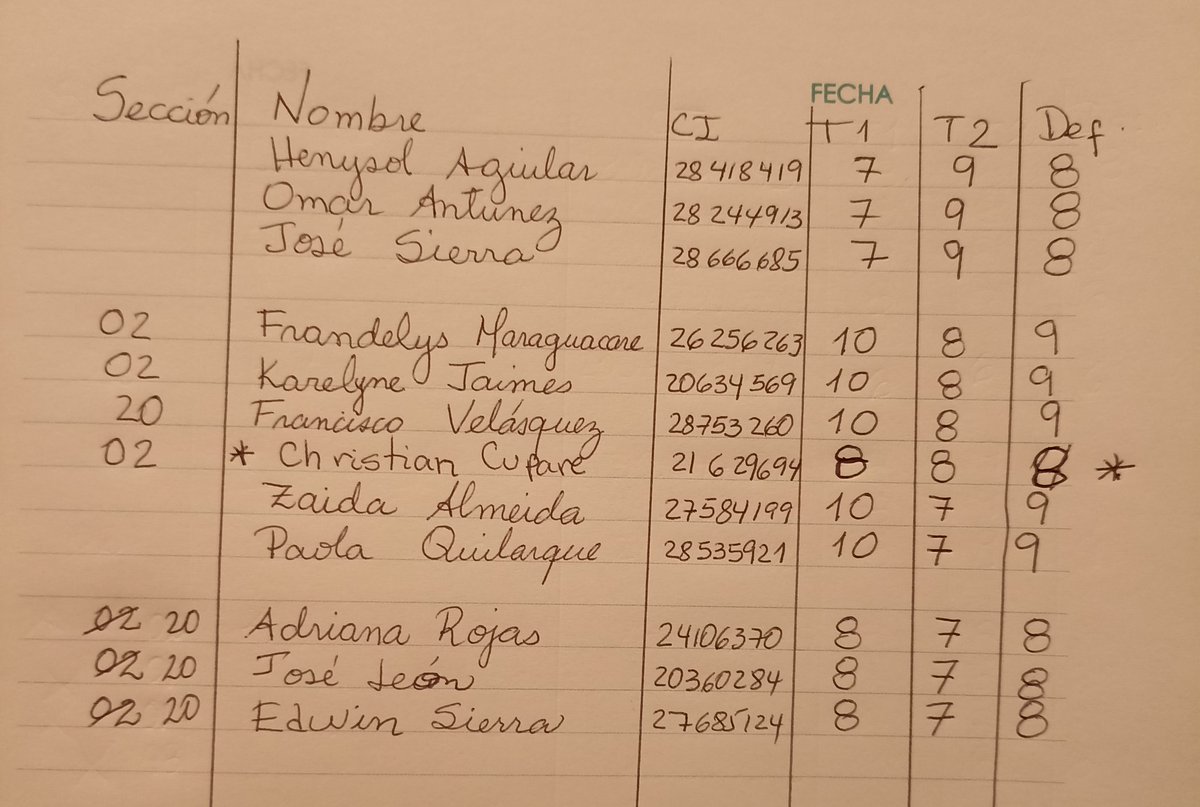 FECHA
Sección Nombre CI T1 T2 Def.
Henysol Aguilar 28418419 7 9 8
Omar Antúnez 28244913 7 9 8
José Sierra 28666685 7 9 8
02 Frandelys Maraguacare 26256263 10 8 9
02 Karelyne Jaimes 20634569 10 8 9
20 Francisco Velásquez 28753260 10 8 9
02 * Christian Cufaré 21629694 8 8 8 *
Zaida Almeida 27584199 10 7 9
Paola Quilarque 28535921 10 7 9
02 20 Adriana Rojas 24106370 8 7 8
02 20 José León 20360284 8 7 8
02 20 Edwin Sierra 27685124 8 7 8